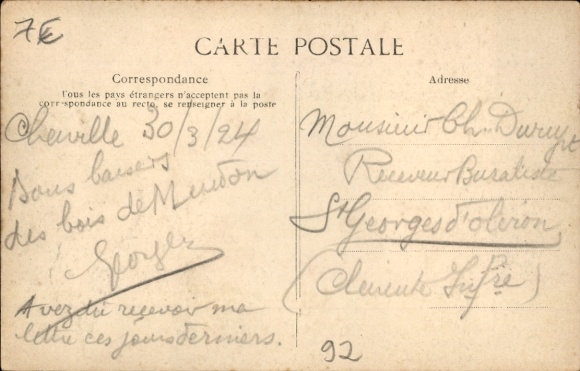 7€
CARTE POSTALE
Correspondance
Tous les pays étrangers n'acceptent pas la
correspondance au recto, se renseigner à la poste
Adresse
Chaville 30/3/24
Bons baisers
des bois de Meudon
Georges
Avez dû recevoir ma
lettre ces jours derniers.
Monsieur Ch. Duruy
Receveur Buraliste
St Georges d'oléron
(Charente Infre)
92